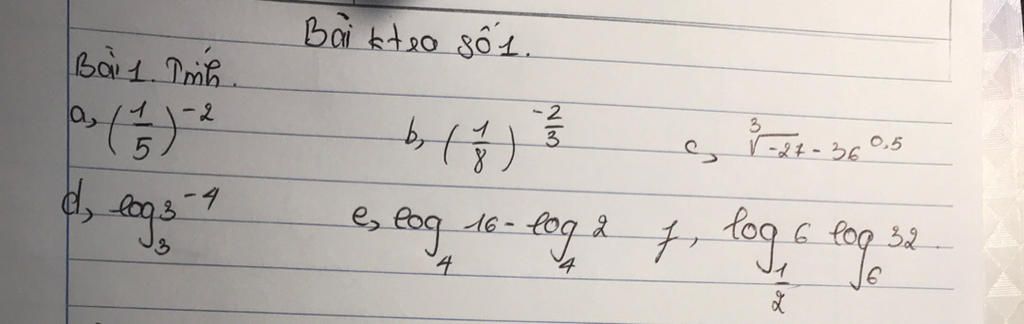 Bài ktra số 1.
Bài 1. Tính.
a, (1/5)^-2 b, (1/8)^-2/3 c, ∛-27 - 36^0,5
d, log_3 3^-4 e, log_4 16 - log_4 2 f, log_1/2 6 log_6 32.